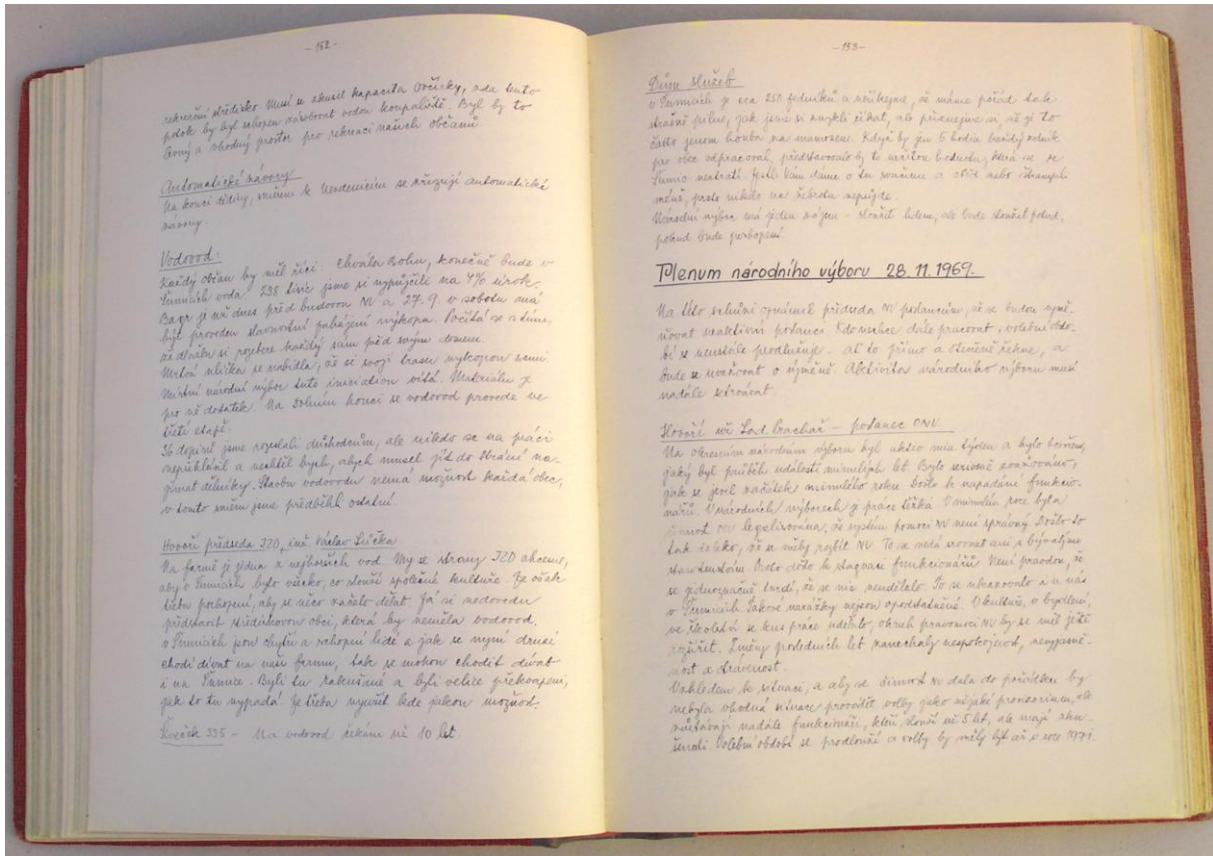 - 152 -
rekreační středisko. Musí se zkusit kapacita Ovčírky, zda tento
potok by byl schopen zásobovat vodou koupaliště. Byl by to
levný a vhodný prostor pro rekreaci našich občanů.
Automatické závory
Na konci dědiny, směrem k Uherčicím se zřizují automatické
závory.
Vodovod:
Každý občan by měl říci: Chvála Bohu, konečně bude v
Šumicích voda. 238 tisíc jsme si vypůjčili na 4% úrok.
Bagr je už dnes před budovou NV a 27. 9. v sobotu má
být proveden slavnostní zahájení výkopu. Počítá se s tím,
že dlažbu si rozebere každý sám před svým domem.
Mrtvá ulička se nabídla, že si svoji trasu vykopou sami.
Místní národní výbor tuto iniciativu vítá. Materiálu je
pro ně dostatek. Na dolním konci se vodovod provede ve
třetí etapě.
36 dopisů jsme rozeslali důchodcům, ale nikdo se na práci
nepřihlásil a nechtěl bych, abych musel jít do Strání na-
jímat dělníky. Stavbu vodovodu nemá možnost každá obec,
v tomto směru jsme předběhli ostatní.
Hovoří předseda JZD, inž. Václav
Na farmě je jedna z nejhorších vod. My ze strany JZD chceme,
aby v Šumicích bylo všecko, co slouží společné kultuře. Je však
třeba pochopení, aby se něco začalo dělat. Já si nedovedu
představit střediskovou obci, která by neměla vodovod.
V Šumicích jsou chytří a schopní lidé a jak se nyní druzí
chodí dívat na naši farmu, tak se mohou chodit dívat
i na Šumice. Byli tu rakušané a byli velice překvapeni,
jak to tu vypadá. Je třeba využít kde jakou možnost.
335 - Na vodovod čekám už 10 let.
- 153 -
Dům služeb
V Šumicích je cca 250 ředníků a neříkejme, že máme pořád tak
strašně pilno, jak jsme si zvykli říkat, ale přiznejme si, že je to
často jenom honba za mamonem. Když by jen 5 hodin každý rodník
pro obec odpracoval, představovalo by to určitou hodnotu, která se ze
Šumic neztratí. Jestli Vám dáme o tu svačinu a oběd nebo štamprli
méně, proto nikdo na žebrotu nepůjde.
Národní výbor má jeden zájem - sloužit lidem, ale bude sloužit potud,
pokud bude pochopení.
Plenum národního výboru 28. 11. 1969.
Na této schůzi oznámil předseda NV poslancům, že se budou vymě-
ňovat neaktivní poslanci. Kdo nechce dále pracovat, volební obdo-
bí se neustále prodlužuje - ať to přímo a otevřeně řekne, a
bude se uvažovat o výměně. Aktivita národního výboru musí
nadále setrvávat.
Hovoří inž. Lad. - poslanec ONV
Na okresním národním výboru byl aktiv min. týden a bylo hovořeno,
jaký byl průběh událostí minulých let. Bylo uvažováno,
jak se jevil začátek minulého roku. Došlo k napadání funkcio-
nářů. V národních výborech je práce těžká. V minulém roce byla
činnost NV legalizována, že systém pomoci NV není správný. Došlo to
tak daleko, že se měly rozbít NV. To se nedá srovnat ani s bývalým
starostenstvím. Proto došlo k stagnaci funkcionářů. Není pravdou, že
se jednoznačně tvrdí, že se nic neudělalo. To se ukazovalo a u nás
v Šumicích takové narážky nejsou opodstatněné. V kultuře, v bydlení,
ve školství se kus práce udělalo, okruh pravomocí NV by se měl ještě
rozšířit. Změny posledních let zanechaly nespokojenost, nevyjasně-
nost a ztrávenost.
Vzhledem k situaci, a aby se činnost NV dala do pořádku by
nebyla vhodná situace provádět volby jako nějaké provizorium, ale
zůstávají nadále funkcionáři, kteří slouží už 5 let, ale mají zku-
šenosti. Volební období se prodlouží a volby by měly být až v roce 1971.